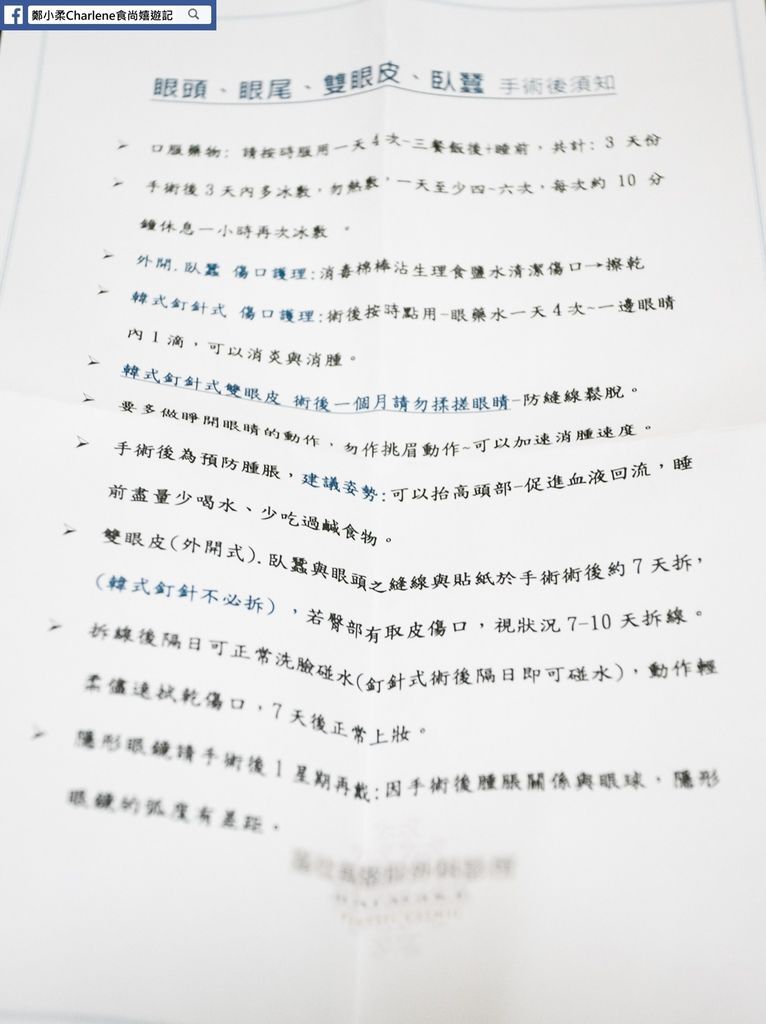 鄭小柔Charlene食尚嬉遊記
眼頭、眼尾、雙眼皮、臥蠶 手術後須知
➢ 口服藥物: 請按時服用一天4次~三餐飯後+睡前，共計: 3 天份
➢ 手術後3天內多冰敷，勿熱敷，一天至少四~六次，每次約 10 分
鐘休息一小時再次冰敷 。
➢ 外開.臥蠶 傷口護理:消毒棉棒沾生理食鹽水清潔傷口→擦乾
➢ 韓式釘針式 傷口護理:術後按時點用-眼藥水一天4次~一邊眼睛
內1滴，可以消炎與消腫。
➢ 韓式釘針式雙眼皮 術後一個月請勿揉搓眼睛-防縫線鬆脫。
➢ 要多做睜開眼睛的動作，勿作挑眉動作~可以加速消腫速度。
➢ 手術後為預防腫脹，建議姿勢:可以抬高頭部-促進血液回流，睡
前盡量少喝水、少吃過鹹食物。
➢ 雙眼皮(外開式).臥蠶與眼頭之縫線與貼紙於手術術後約7天拆，
(韓式釘針不必拆)，若臀部有取皮傷口，視狀況7-10天拆線。
➢ 拆線後隔日可正常洗臉碰水(釘針式術後隔日即可碰水)，動作輕
柔儘速拭乾傷口，7天後正常上妝。
➢ 隱形眼鏡請手術後1星期再戴:因手術後腫脹關係與眼球，隱形
眼鏡的弧度有差距。